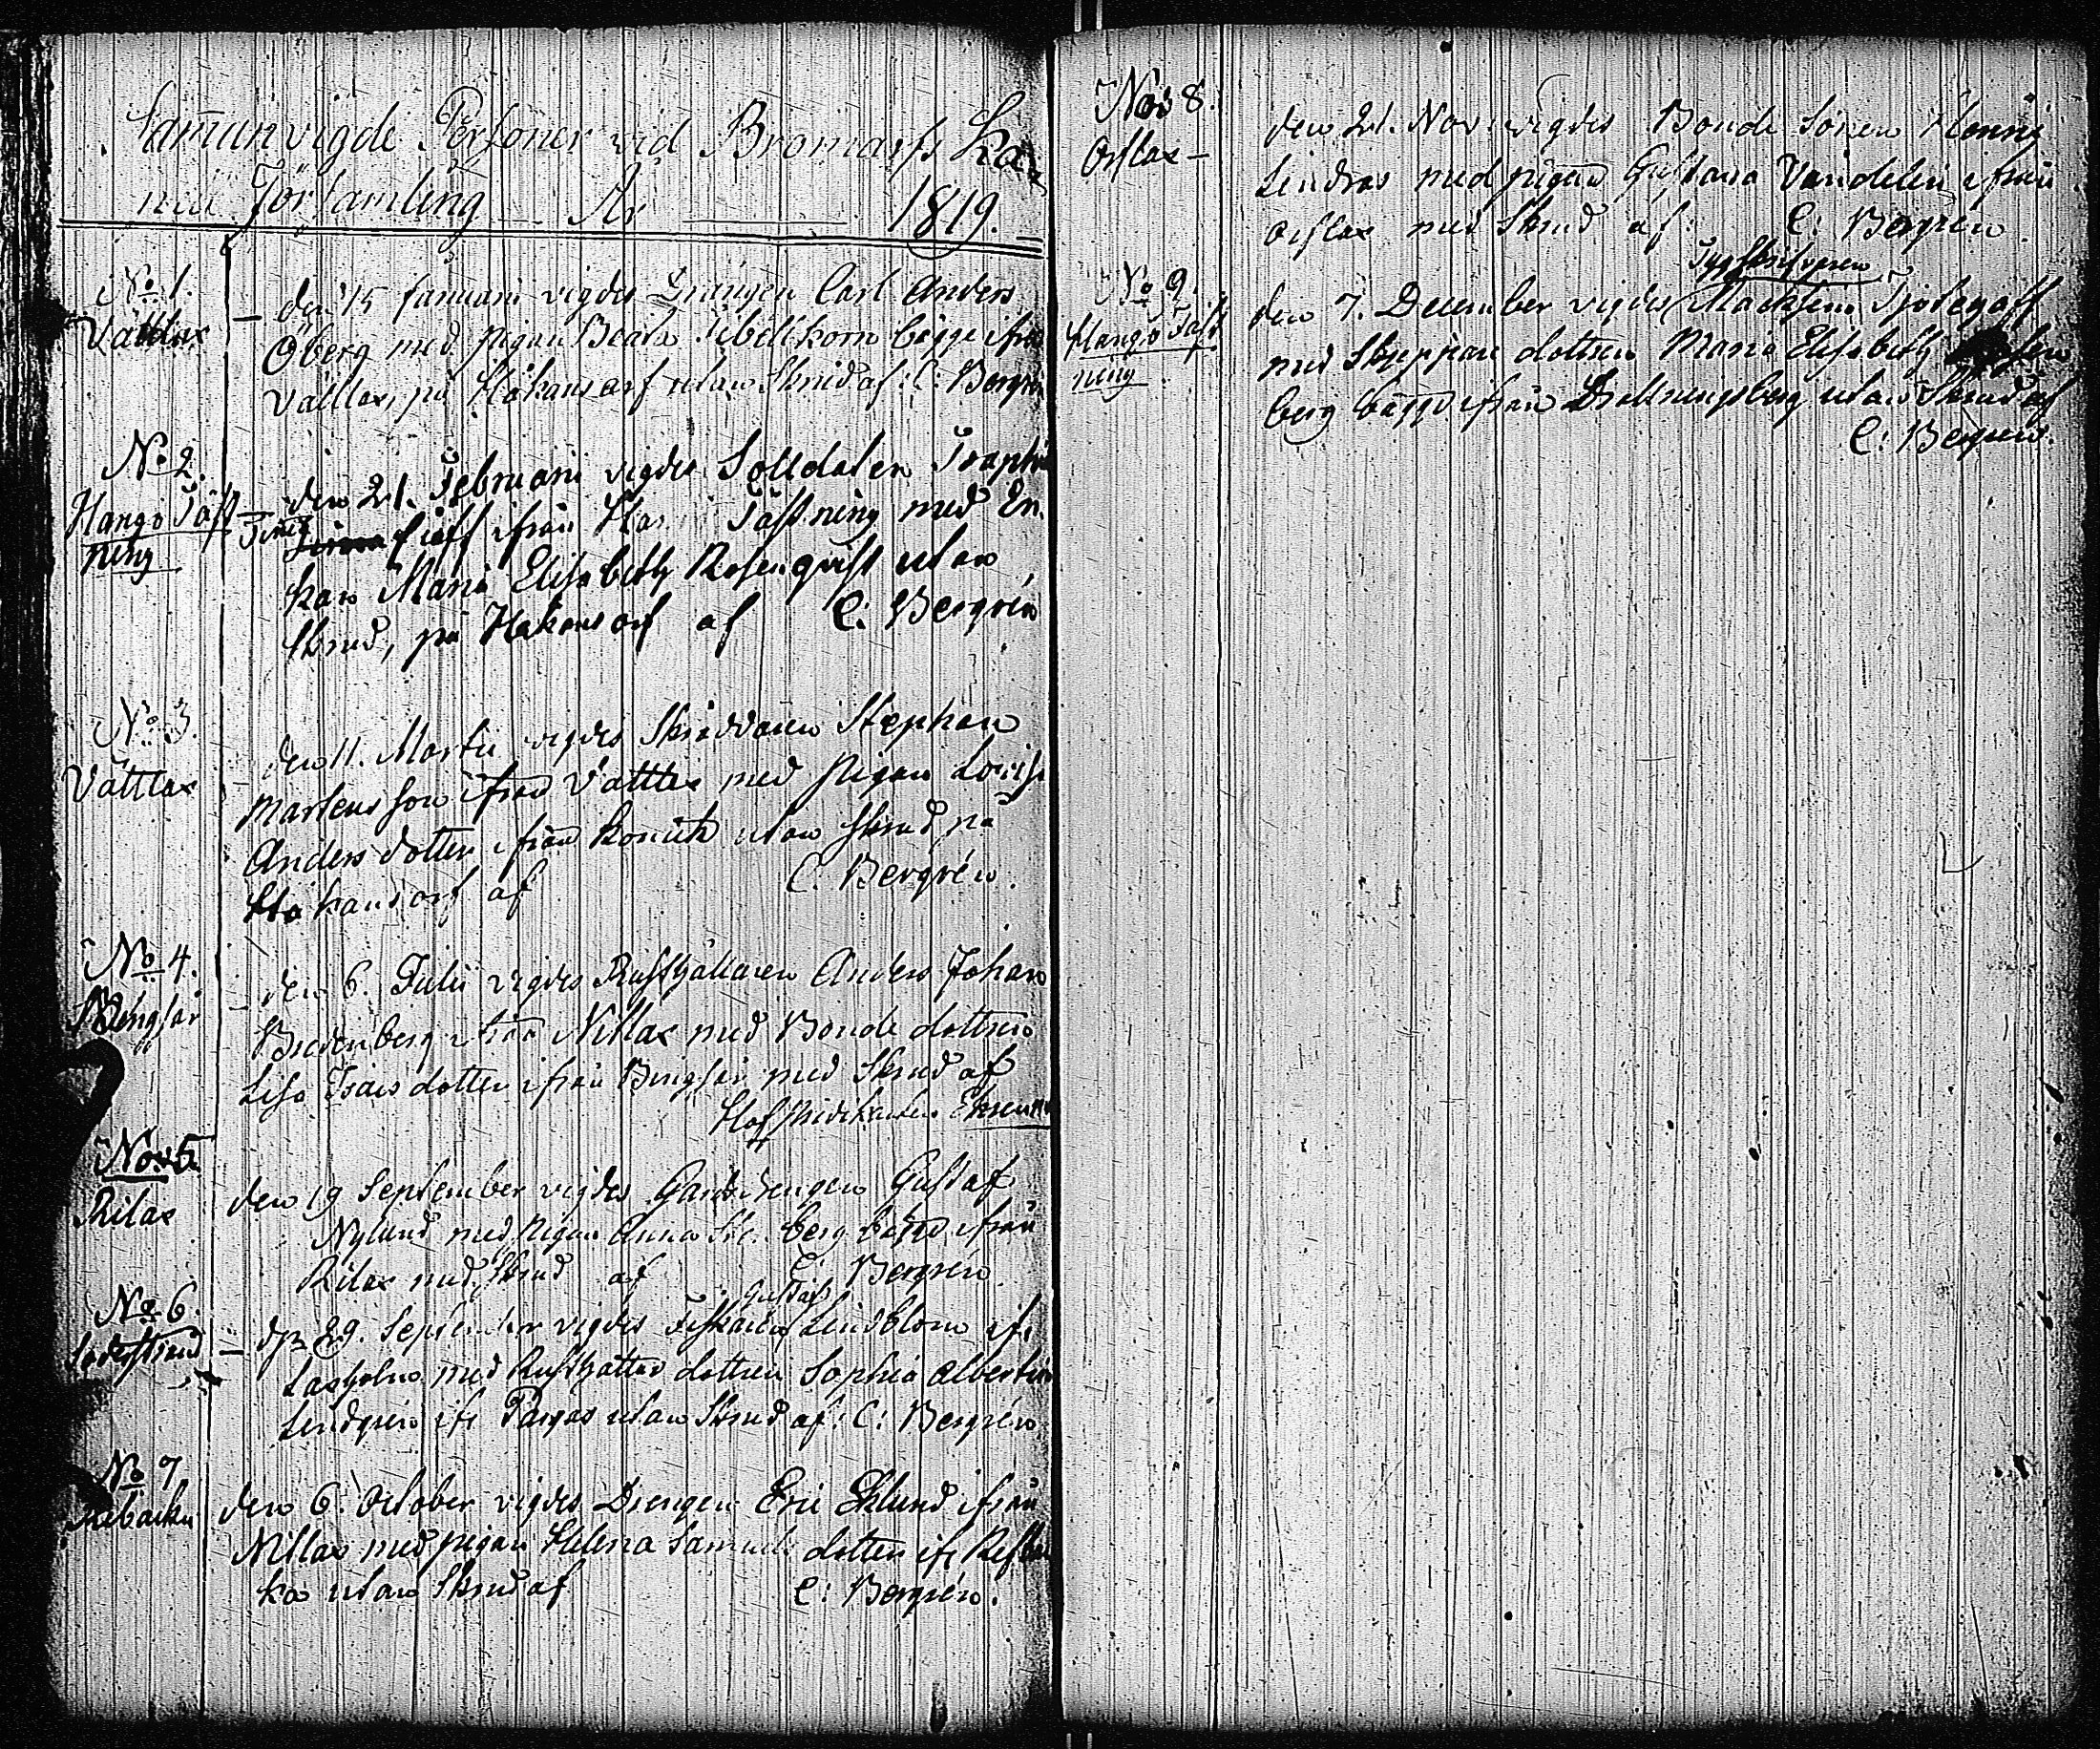 Sammanvigde Personer vid Bromarfs Ca
Församling År 1819.
No 1.
Vättlax
den 15 Januarii vigdes Drängen Carl Anders
Öberg med pigan Beata bägge ifrån
Vättlax, på Håkansarf utan Skrud af: C: Bergrén
No 2.
Hangö Fäst
ning
den 21. Februarii vigdes Solldaten
ifrån Fästning med En
kan Maria Elisabeth Rosenqvist utan
Skrud, på Håkansarf af C: Bergrén
No 3.
Vättlax
den 11. Martii vigdes Skräddaren Stephan
Mårtensson ifrån Vättlax med Pigan Lovisa
Anders dotter ifrån utan Skrud på
Håkansarf af C. Bergrén.
No 4.
Bengsår
den 6. Julii vigdes Rusthållaren Anders Johan
Bredenberg ifrån Nitlax med Bonde dottren
Lisa Isacs dotter ifrån Bengsår med Skrud af
Hof Predikanten
No 5.
Rilax
den 19 September vigdes Gårds Drengen Gustaf
Nylund med Pigan Anna berg bägge ifrån
Rilax med Skrud af C: Bergrén
No 6.
Söderstrand
Gustaf
den 29. September vigdes Fiskaren Lindblom ifr
Laxholm med Rusthållar dottren Sophia Albertina
Lindgrén ifr Pargas utan Skrud af: C: Bergrén
No 7.
den 6. October vigdes Drengen Eric Eklund ifrån
Nitlax med pigan Helena Samuels dotter ifr
ka utan Skrud af C: Bergrén.
No 8.
den 21. Nov. vigdes Bonde Sonen Henric
Lindros med pigan Gustava Vandelin ifrån
med Skrud af: C: Bergrén.
No 9.
Hangö Fäst
ning
den 7. December vigdes
med Skeppare dottren Maria Elisabeth
berg bägge ifrån Drottningsberg utan Skrud af
C: Bergrén.